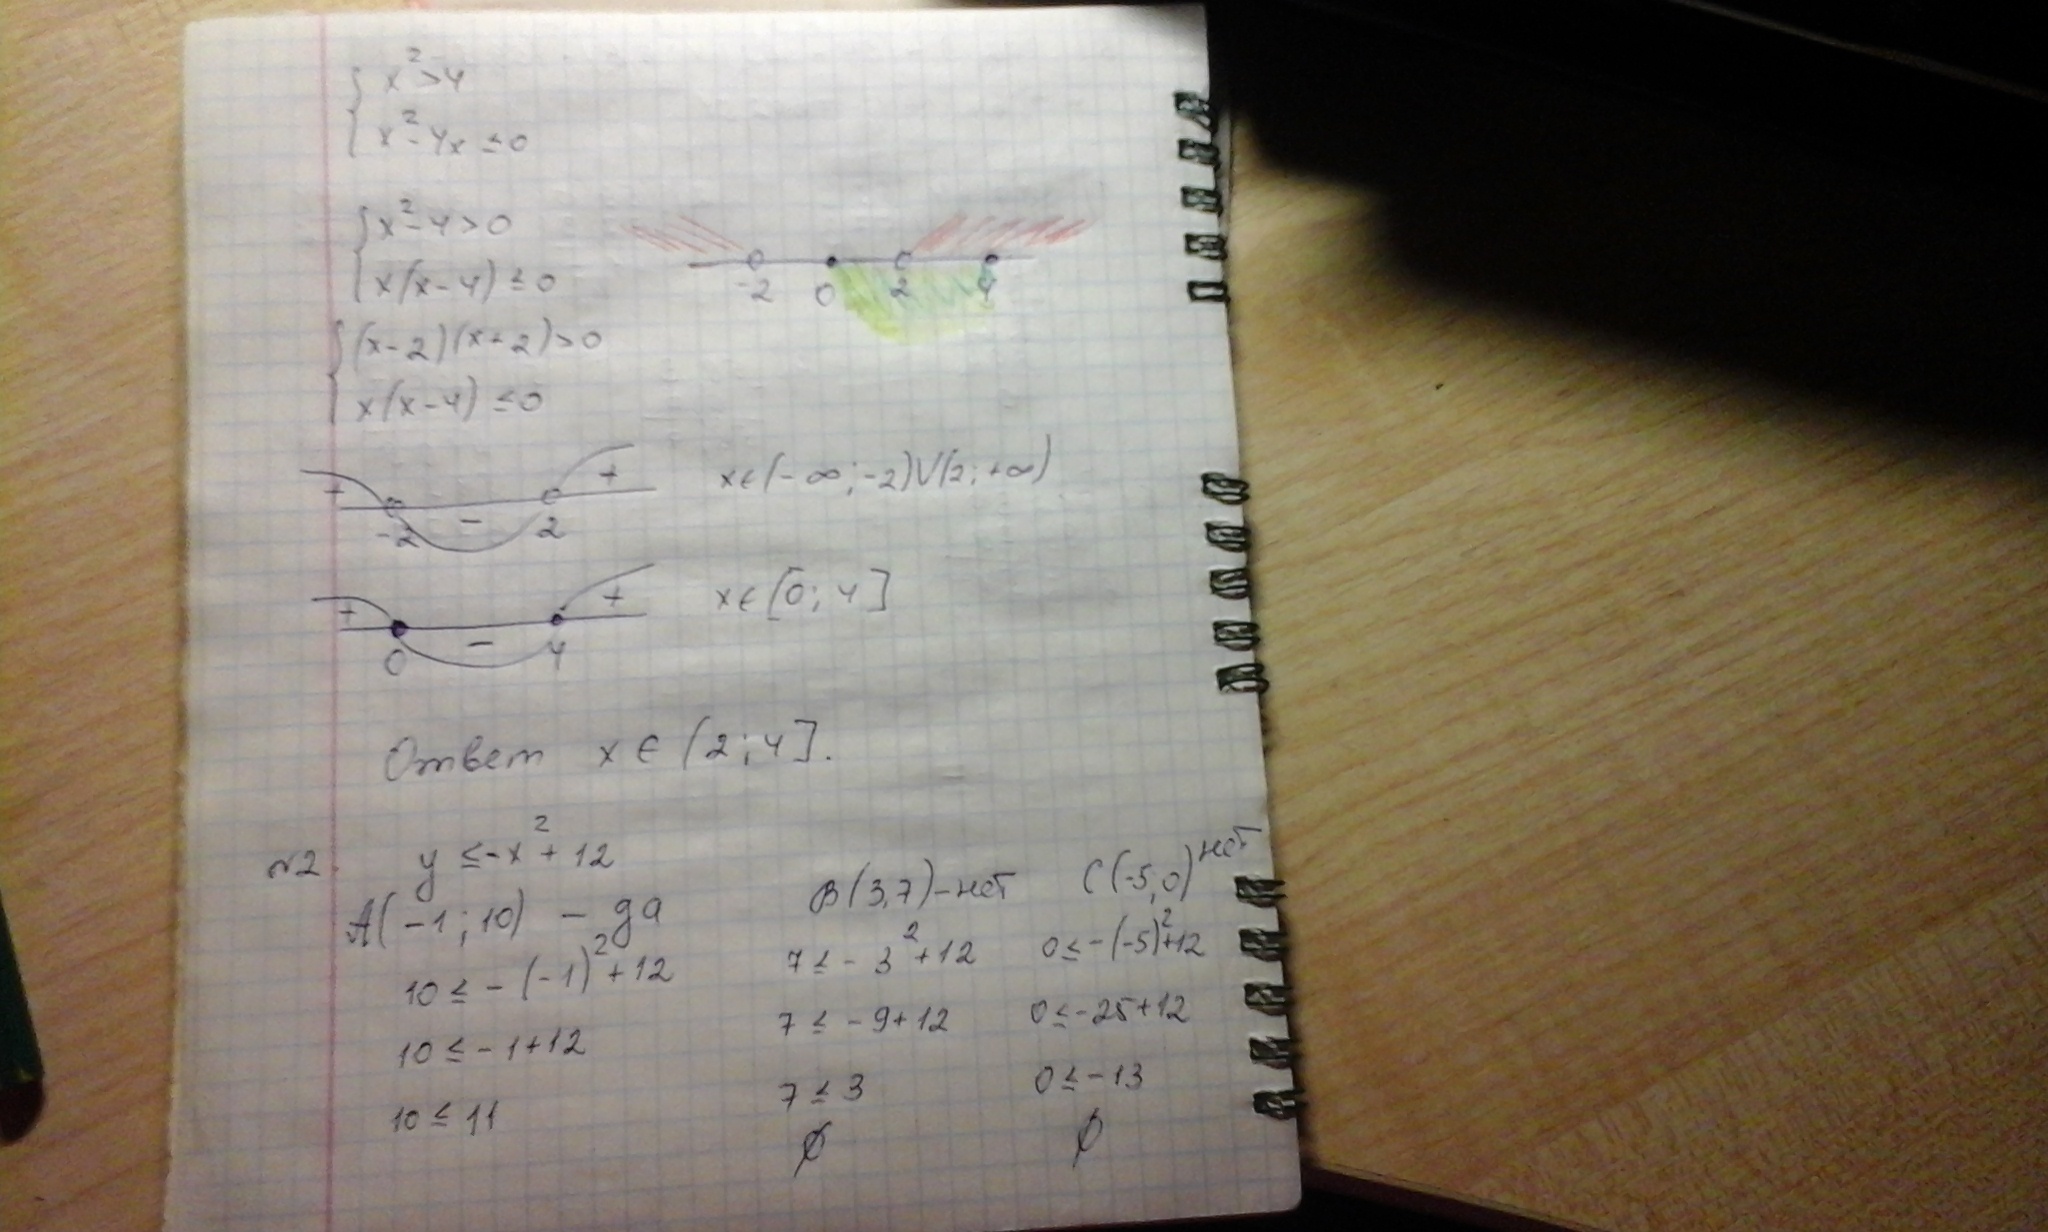 x²>4
x²-4x≤0
x²-4>0
x(x-4)≤0
-2 0 2 4
(x-2)(x+2)>0
x(x-4)≤0
+ - +
-2 2
x∈(-∞;-2)∪(2;+∞)
+ - +
0 4
x∈[0;4]
Ответ x∈(2;4].
№2. y≤-x²+12
A(-1;10) - да
10≤-(-1)²+12
10≤-1+12
10≤11
B(3,7)-нет
7≤-3²+12
7≤-9+12
7≤3
∅
C(-5,0) нет
0≤-(-5)²+12
0≤-25+12
0≤-13
∅